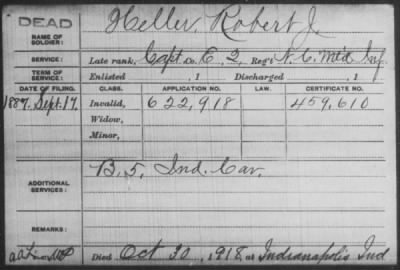 DEAD
NAME OF SOLDIER: Heller, Robert J.
SERVICE: Late rank, Capt. Co. E, 2, Reg't N.C. Mtd Inf.
TERM OF SERVICE: Enlisted , 1 Discharged , 1
DATE OF FILING. CLASS. APPLICATION NO. LAW. CERTIFICATE NO.
1887, Sept. 17. Invalid, 622,918 459,610
Widow,
Minor,
ADDITIONAL SERVICES: B. 5, Ind. Cav.
REMARKS:
Died Oct 30, 1918, at Indianapolis Ind